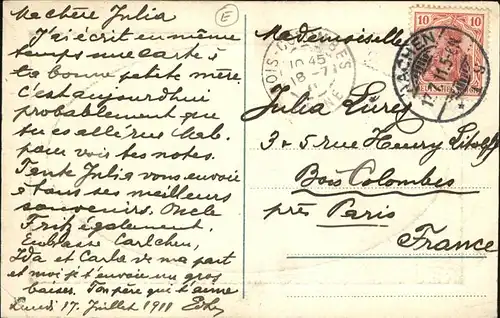 Ma chère Julia
J'ai écrit en même
temps une carte à
ta bonne petite mère.
C'est aujourdhui
probablement que
tu es allé rue
pour voir tes notes.
Tante Julia vous envoie
à tous ses meilleurs
souvenirs. Oncle
Fritz également.
Embrasse Carlchen,
Ida et Carla de ma part
et moi je t'envoie un gros
baiser. Ton père qui t'aime
Lundi 17. Juillet 1911
E
BOIS-COLOMBES
10 45
18 -7
11
SEINE
10 10
AACHEN
17.7.11.5-6N
DEUTSCHES REICH
Mademoiselle
Julia
3 & 5 rue Henry Litolff
Bois Colombes
près Paris
France